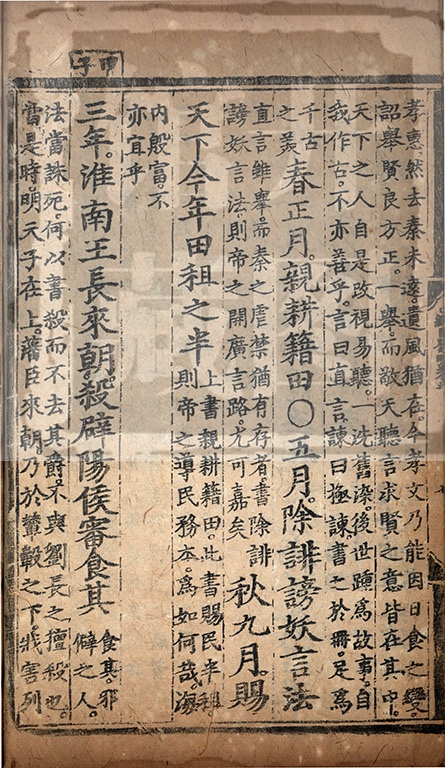 甲子
孝惠。然去秦未遠。遺風猶在。今孝文乃能因日食之變。
詔舉賢良方正。一舉而敬天聽言求賢之意皆在其中。
天下之人自是改視易聽。一洗舊染。後世踵爲故事。自
我作古。不亦善乎。言曰直言。諫曰極諫。書之於冊。足爲
千古
之美
春正月。親耕籍田○五月。除誹謗妖言法
直言雖舉。而秦之虐禁猶有存者。書除誹
謗妖言法。則帝之開廣言路。尤可嘉矣
秋九月。賜
天下今年田租之半
上書親耕籍田。此書賜民半租。
則帝之導民務本。爲如何哉。海
內殷富。不
亦宜乎
三年。淮南王長來朝。殺辟陽侯審食其
食其。邪
僻之人。
法當誅死。何以書殺而不去其爵。不與劉長之擅殺也。
當是時。明天子在上。藩臣來朝。乃於輦轂之下。戕害列